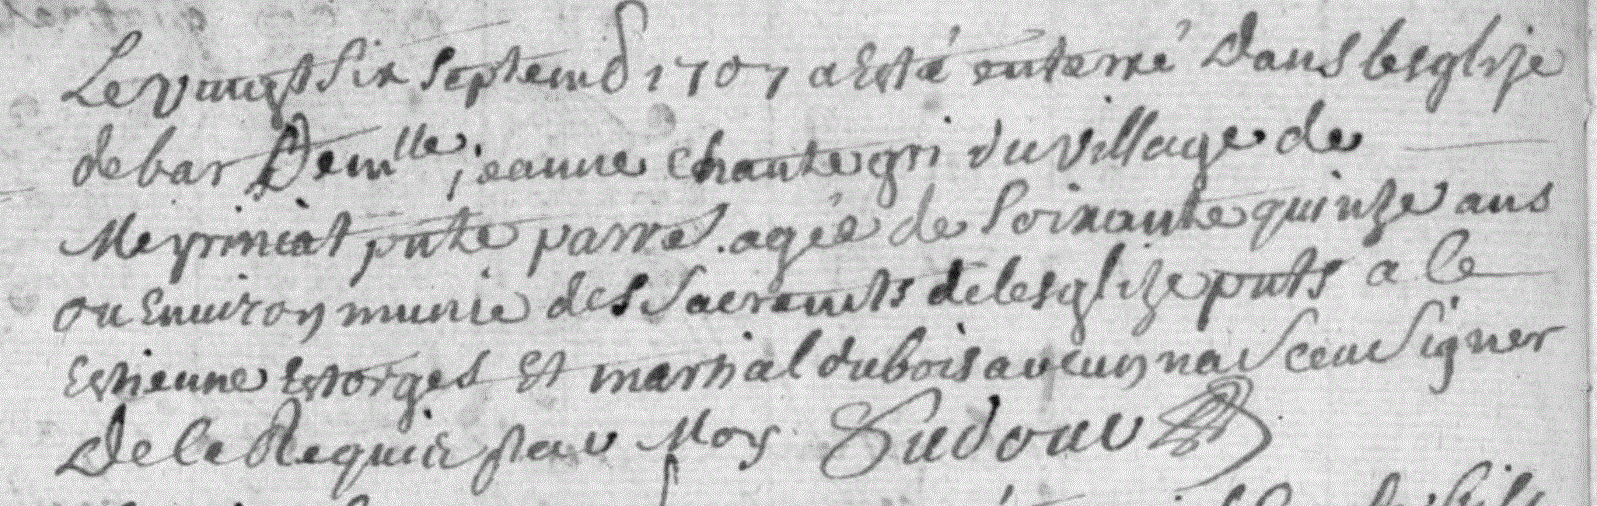 Le vingt Six Septemb 1707 a Esté enterré Dans lesglize
de bar Demlle jeanne chantegri du village de
Meyriniat pnte parre. agée de Soixante quinze ans
ou Environ munie des Sacremts de lesglize pnts a le
Estienne Estorges Et martial dubois aucun na Sceu Signer
De ce Requis par Moy Sudour